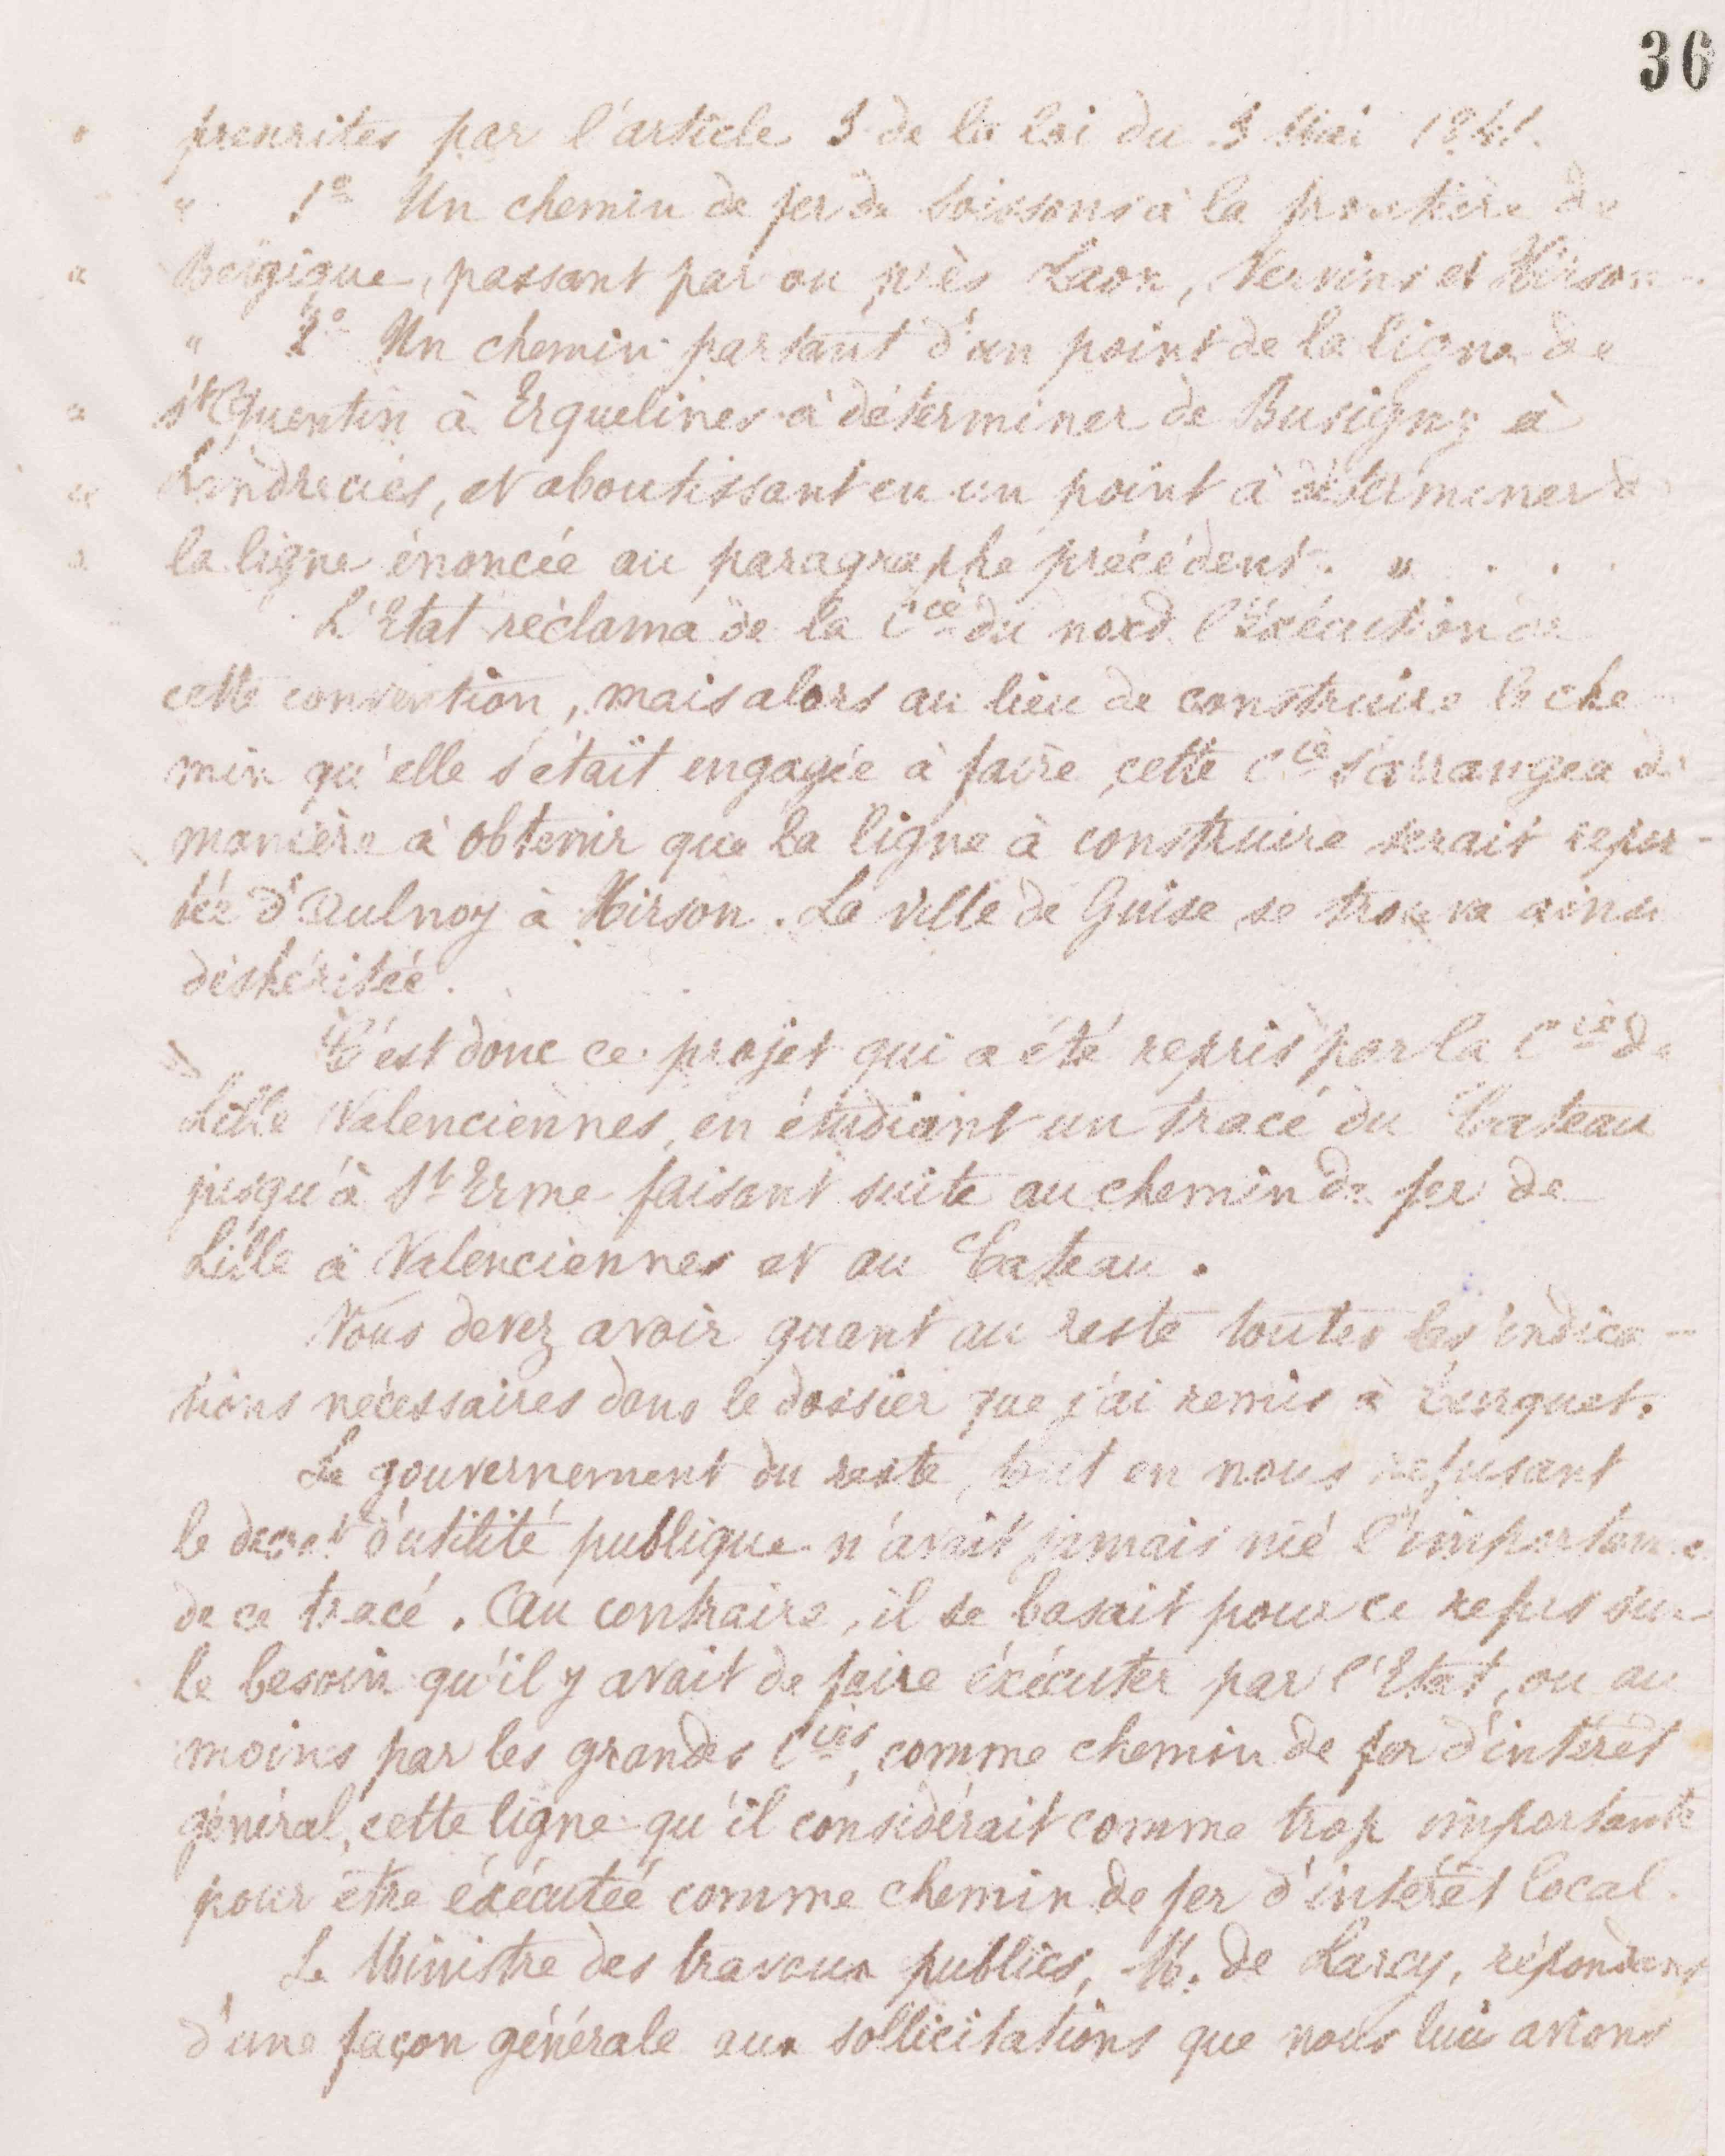 36
" prescrites par l'article 3 de la loi du 3 Mai 1841.
" 1° Un chemin de fer de Soissons à la frontière de
" Belgique, passant par ou près Laon, Vervins et Hirson.
" 2° Un chemin partant d'un point de la ligne de
" St Quentin à Erquelines à déterminer de Busigny à
" Landrecies, et aboutissant en un point à déterminer de
" la ligne énoncée au paragraphe précédent. " . . .
L'Etat réclama de la Cie du nord l'éxécution de
cette convention, mais alors au lieu de construire le che
min qu'elle s'était engagée à faire, cette Cie s'arrangea de
manière à obtenir que la ligne à construire serait repor-
tée d'Aulnoy à Hirson. La ville de Guise se trouva ainsi
déshéritée.
C'est donc ce projet qui a été repris par la Cie de
Lille Valenciennes, en étudiant un tracé du Cateau
jusqu'à St Erme faisant suite au chemin de fer de
Lille à Valenciennes et au Cateau.
Vous devez avoir quant au reste toutes les indica-
tions nécessaires dans le dossier que j'ai remis à Turquet.
Le gouvernement du reste, tout en nous refusant
le decret d'utilité publique n'avait jamais nié l'importance
de ce tracé. Au contraire, il se basait pour ce refus sur
le besoin qu'il y avait de faire éxécuter par l'Etat, ou au
moins par les grandes Cies, comme chemin de fer d'intérêt
général, cette ligne qu'il considérait comme trop importante
pour être éxécutée comme chemin de fer d'intérêt local.
Le Ministre des travaux publics, M. de Larcy, répondant
d'une façon générale aux sollicitations que nous lui avions